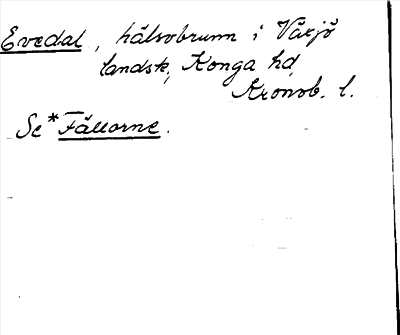 Evedal, hälsobrunn i Växjö
landsk, Konga hd,
Kronob. l.
Se *Fällorne.